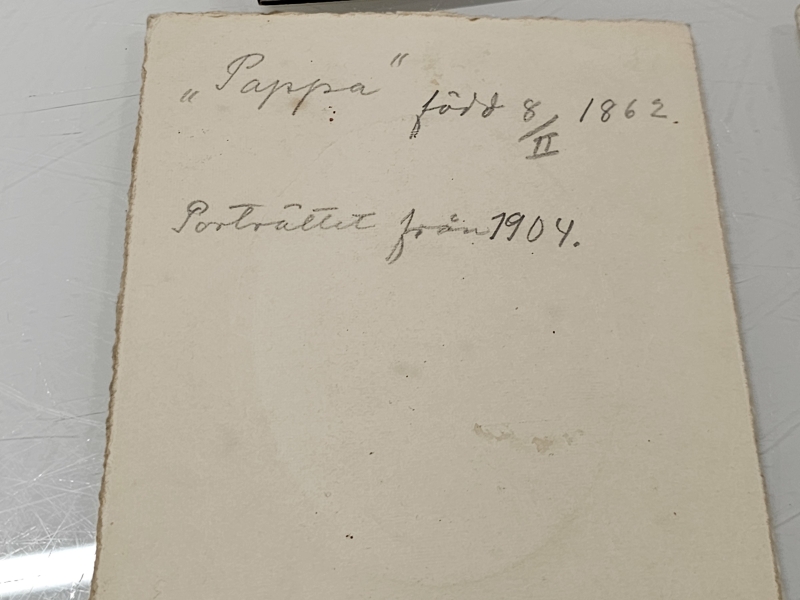 „Pappa“ född 8/II 1862.
Porträttet från 1904.